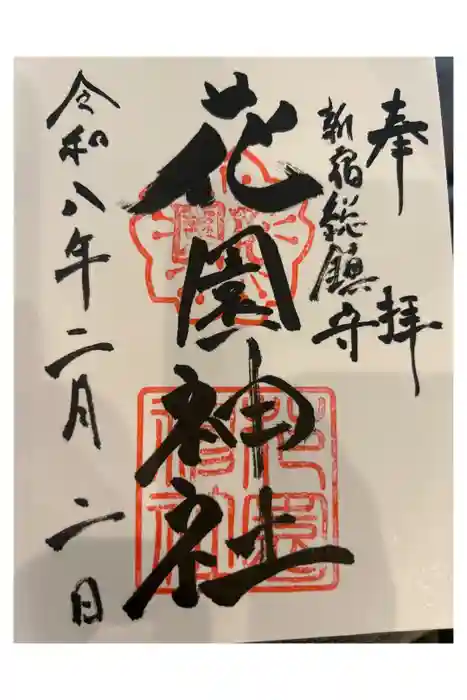 奉拝
新宿総鎮守
花園神社
令和八年二月二日
花園神社